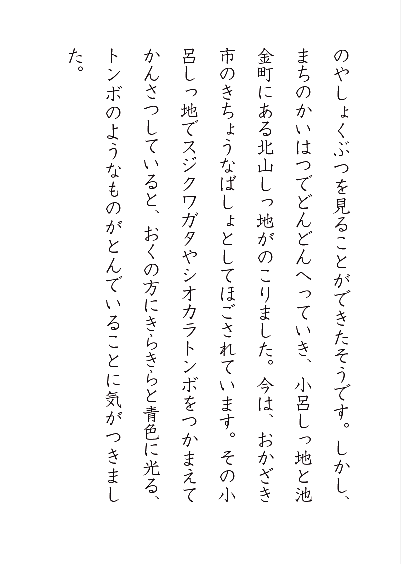 のやしょくぶつを見ることができたそうです。しかし、
まちのかいはつでどんどんへっていき、小呂しっ地と池
金町にある北山しっ地がのこりました。今は、おかざき
市のきちょうなばしょとしてほごされています。その小
呂しっ地でスジクワガタやシオカラトンボをつかまえて
かんさつしていると、おくの方にきらきらと青色に光る、
トンボのようなものがとんでいることに気がつきまし
た。